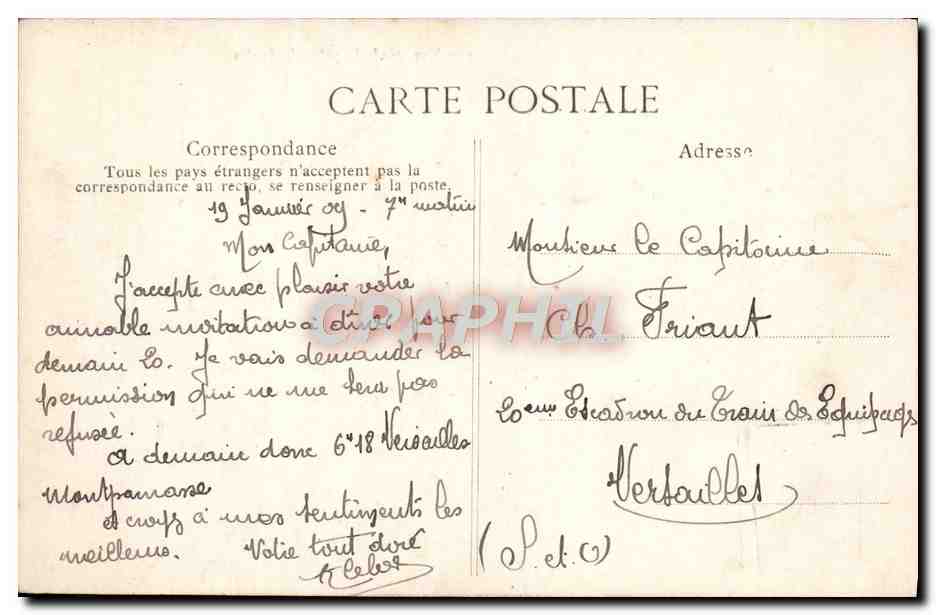 CARTE POSTALE
Correspondance
Tous les pays étrangers n'acceptent pas la
correspondance au recto, se renseigner à la poste.
19 Janvier 09 - 7h matin
Mon Capitaine,
J'accepte avec plaisir votre
aimable invitation à dîner pour
demain 20. Je vais demander la
permission qui ne me sera pas
refusée.
A demain donc 6h18 Versailles
Montparnasse
et croyez à mes sentiments les
meilleurs. Votre tout
Adresse
Monsieur le Capitaine
Ch. Friant
20eme Escadron du Train des Equipages
Versailles
(S. et. O)
CPAPHIL